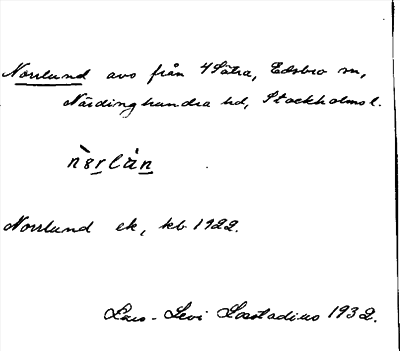 Norrlund avs från 4 Sätra, Edsbro sn,
Närdinghundra hd, Stockholms l.
Norrlund ek, kb 1922.
Lars-Levi Læstadius 1932.